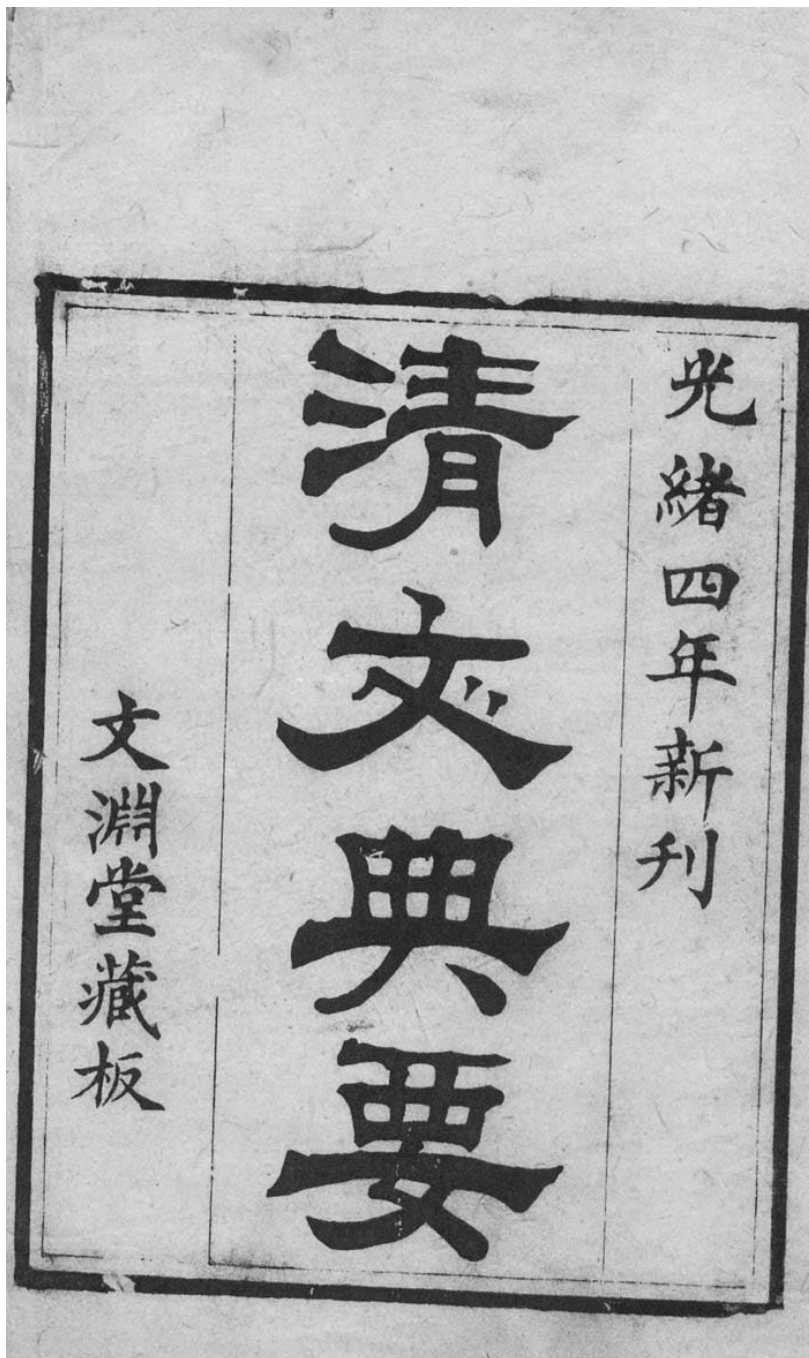 光緒四年新刊
清文典要
文淵堂藏板